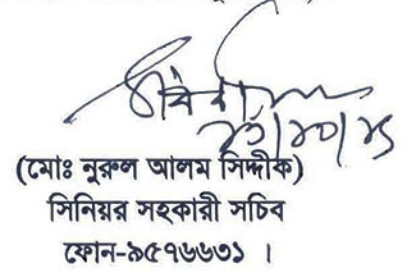 (মোঃ নুরুল আলম সিদ্দীক)
সিনিয়র সহকারী সচিব
ফোন-৯৫৭৬৬৩১ ।